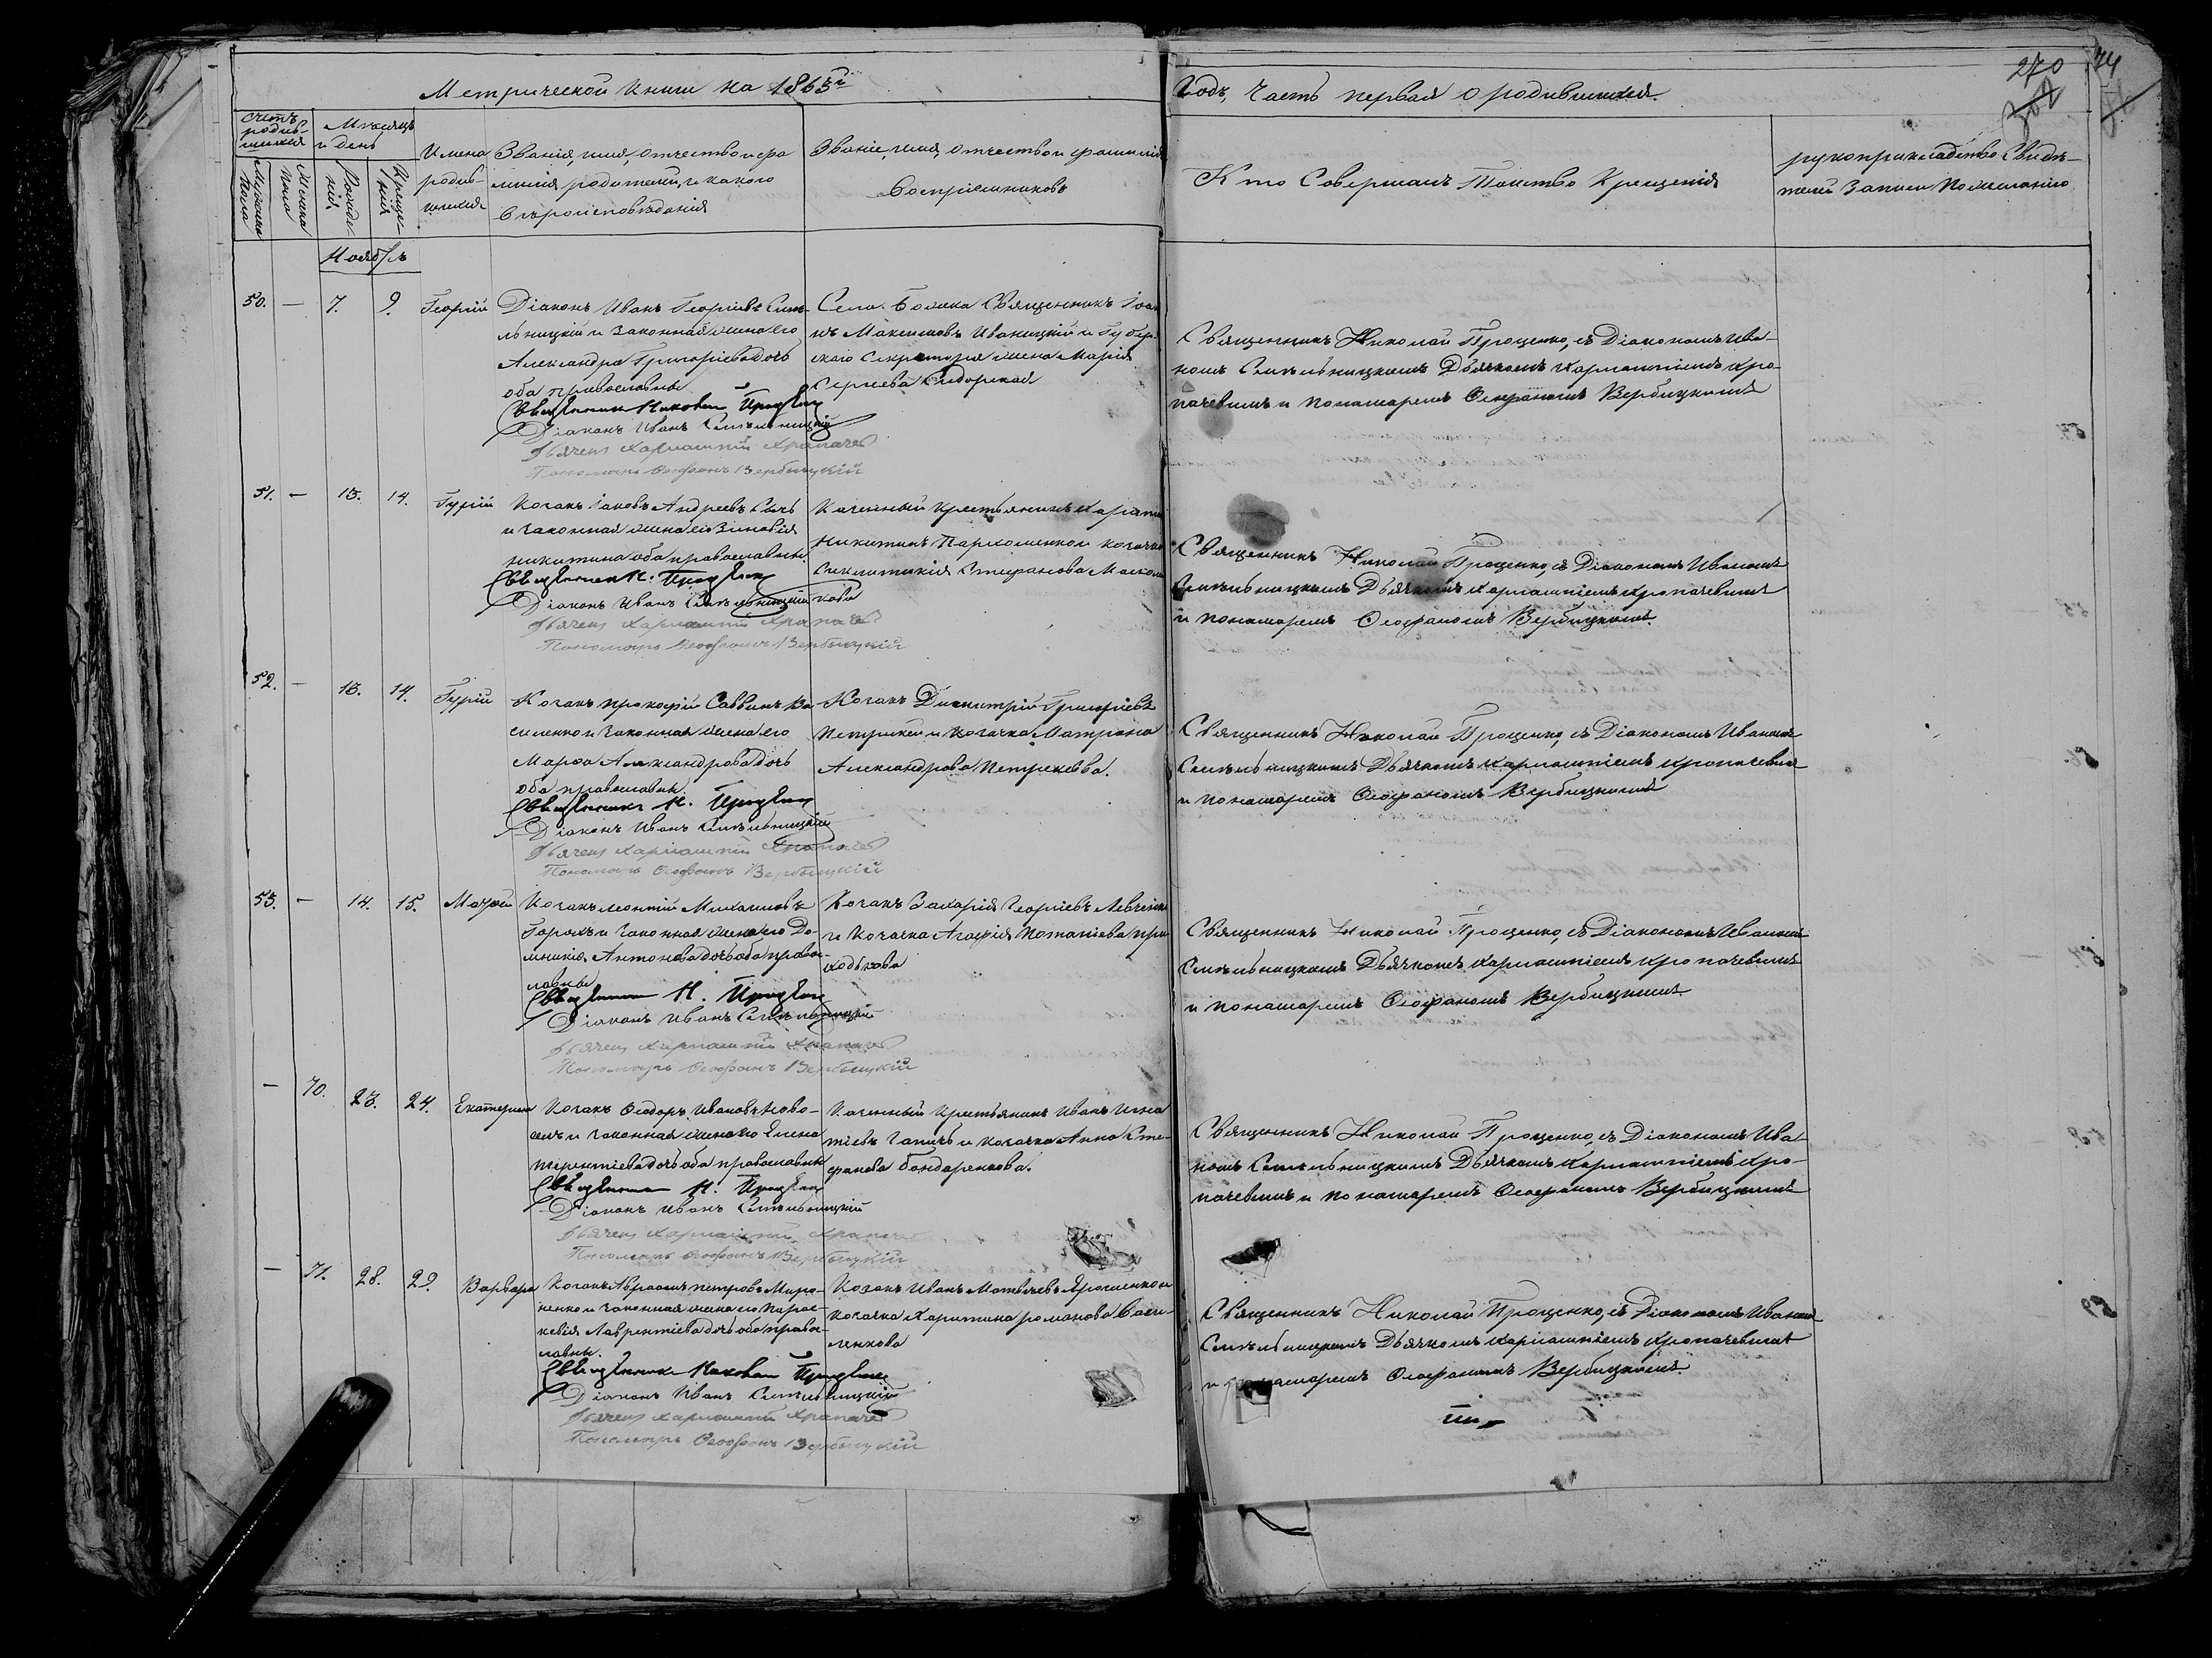 Метрической Книги на 1863й
Годъ, Часть первая о родившихся.
270
74
Счетъ родив-
шихся
Мужеска
пола
Женска
пола
Мѣсяцъ
и день
Рожде-
нія
Креще-
нія
Имена
родив-
шихся
Званія, имя, отчество и фа
милія родителей, и какого
вѣроисповѣданія
Званіе, имя, отчество и фамилія
Воспріемниковъ
Кто Совершалъ Таинство Крещенія
рукоприкладство Свидѣ-
телей Записи По желанію
Ноябрь
50. — 7. 9. Георгій
Діаконъ Иванъ Георгіевъ Смѣ-
льницкій и Законная жена его
Александра Григорьева дочь
оба православны
Священникъ Николай Проценко
Діаконъ Иванъ Смѣльницкій
Дьячекъ Харлампій Кропачев
Пономарь Ѳеофанъ Вербыцкій
Села Священникъ Іоан
нъ Максимовъ Иваницкій и Губерн
скаго Секретаря жена Марія
Сергѣева
Священникъ Николай Проценко, съ Діакономъ Ива-
номъ Смѣльницкимъ Дьячкомъ Харлампіемъ Кро-
пачевимъ и пономаремъ Ѳеофаномъ Вербицкимъ
51. — 13. 14. Гурій
Козакъ Іаковъ Андреевъ
и Законная жена его Зиновія
Никитина оба православны.
Священник Н. Проценко
Діаконъ Иванъ Смѣльницкій
Дьячекъ Харлампій Кропачев
Пономарь Ѳеофанъ Вербыцкій
Казенный крестьянинъ
Никитинъ Пархоменко и козачка
Синклитикія Стефанова
кова
Священникъ Николай Проценко, съ Діакономъ Иваномъ
Смѣльницкимъ Дьячкомъ Харлампіемъ Кропачевимъ
и пономаремъ Ѳеофаномъ Вербицкимъ.
52. — 13. 14. Гурій
Козакъ Прокофій Саввинъ Ва
силенко и Законная жена его
Марфа Александрова дочь
оба православны.
Священникъ Н. Проценко
Діаконъ Иванъ Смѣльницкій
Дьячекъ Харлампій Кропачев
Пономарь Ѳеофанъ Вербыцкій
Козакъ Димитрій Григоріевъ
и Козачка Матрона
Александрова
Священникъ Николай Проценко, съ Діакономъ Иваномъ
Смѣльницкимъ Дьячкомъ Харлампіемъ Кропачевим
и пономаремъ Ѳеофаномъ Вербицкимъ
53. — 14. 15.
Козакъ Леонтій Михаиловъ
и Законная жена его До-
мникія Антонова дочь оба право-
лавны
Священник Н. Проценко
Діаконъ Иванъ Смѣльницкій
Дьячекъ Харлампій Кропачев
Пономарь Ѳеофанъ Вербыцкій
Козакъ Захарія Георгіевъ Левченко
и Козачка Агафія Потапіева При
ходькова
Священникъ Николай Проценко, съ Діакономъ Иваномъ
Смѣльницкимъ Дьячкомъ Харлампіемъ Кропачевимъ
и пономаремъ Ѳеофаномъ Вербицкимъ.
— 70. 23. 24. Екатерина
Козакъ Ѳеодоръ Ивановъ
и Законная жена его Елена
Терентіева дочь оба православны
Священник Н. Проценко
Діаконъ Иванъ Смѣльницкій
Дьячекъ Харлампій Кропачев
Пономарь Ѳеофанъ Вербыцкій
Казенный крестьянинъ Иванъ Игна
тіевъ и козачка Анна Сте-
фанова Бондаренкова.
Священникъ Николай Проценко, съ Діакономъ Ива
номъ Смѣльницкимъ Дьячкомъ Харлампіемъ Кро-
пачевимъ и пономаремъ Ѳеофаномъ Вербицкимъ
— 71. 28. 29. Варвара
Козакъ Авраамъ Петровъ Миро-
ненко и Законная жена его Парас-
кевія Лаврентіева дочь оба право-
лавны.
Священникъ Николай Проценко
Діаконъ Иванъ Смѣльницкій
Дьячекъ Харлампій Кропачев
Пономарь Ѳеофанъ Вербыцкій
Козакъ Иванъ Матвѣевъ Ярошенко и
козачка Харитина Романова Васи-
ленкова
Священникъ Николай Проценко, съ Діакономъ Иваном
Смѣльницкимъ Дьячкомъ Харлампіемъ Кропачевимъ
и пономаремъ Ѳеофаномъ Вербицкимъ.